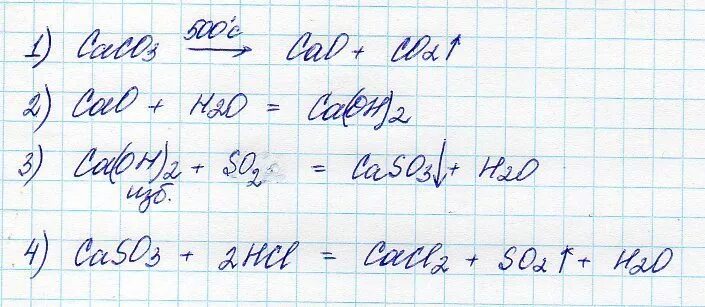 1) CaCO3 500°C → CaO + CO2↑
2) CaO + H2O = Ca(OH)2
3) Ca(OH)2 + SO2 = CaSO3↓ + H2O
изб.
4) CaSO3 + 2HCl = CaCl2 + SO2↑ + H2O